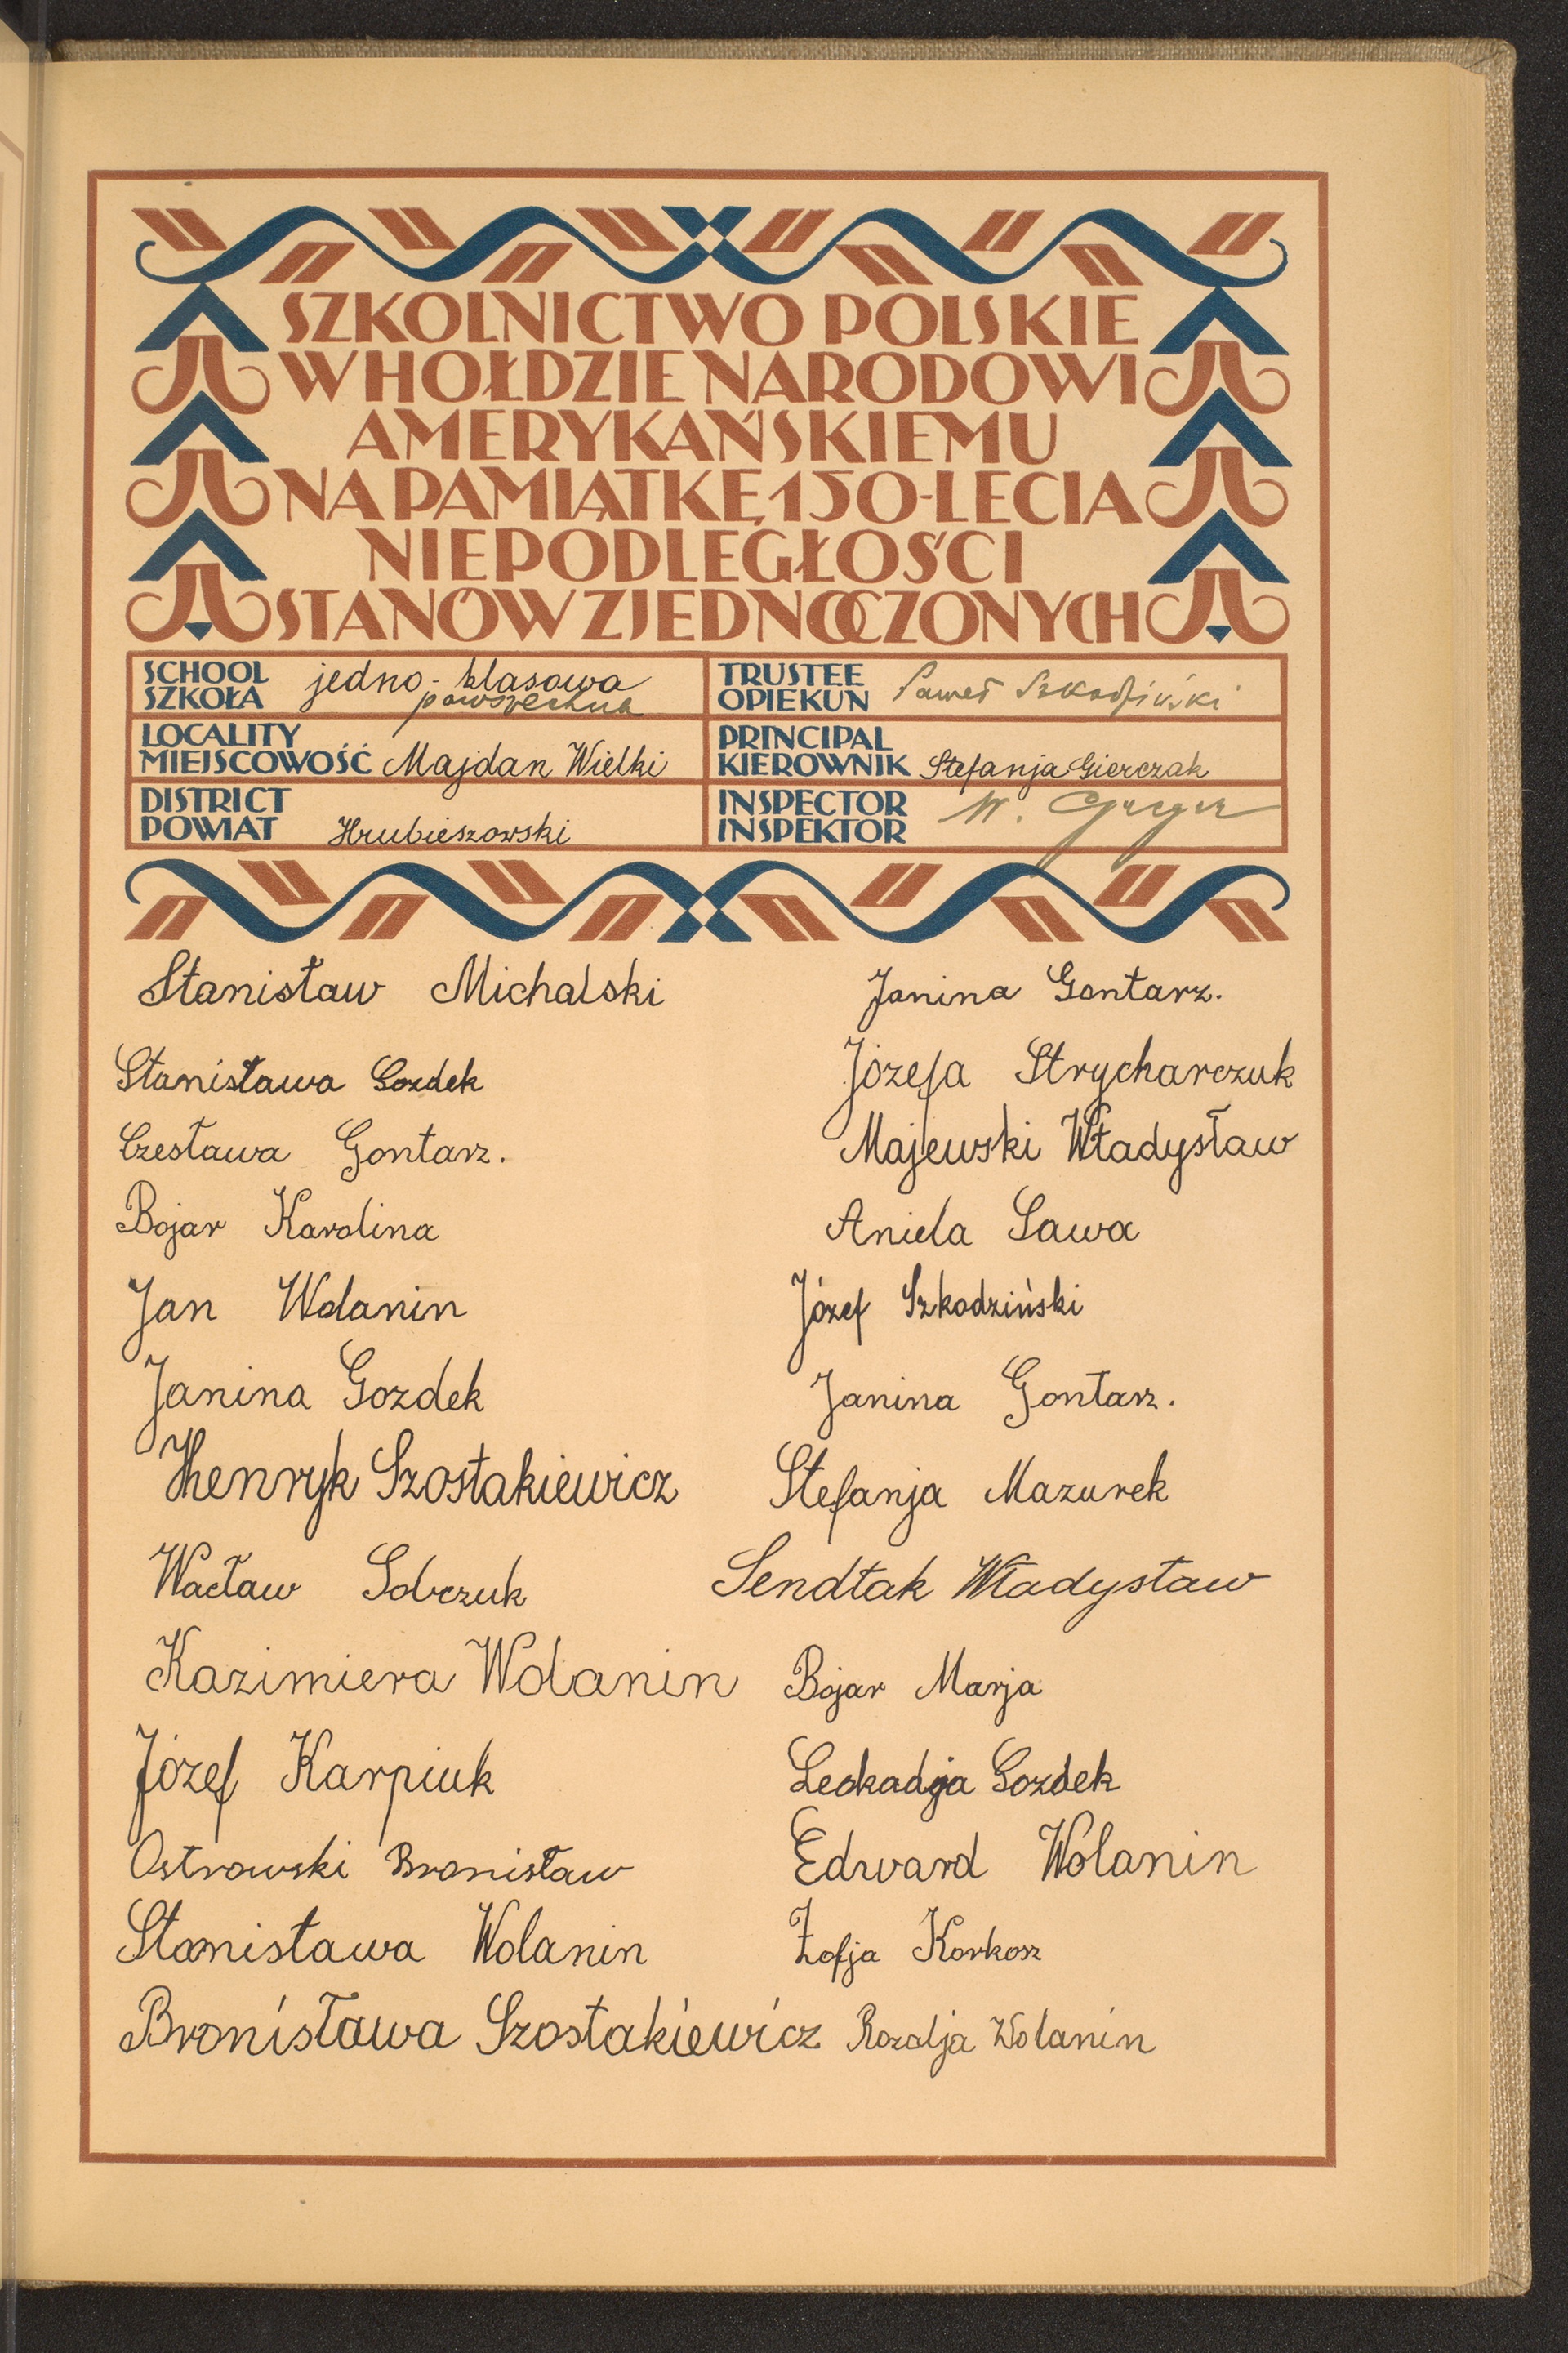 SZKOLNICTWO POLSKIE
W HOŁDZIE NARODOWI
AMERYKAŃSKIEMU
NA PAMIĄTKĘ 150-LECIA
NIEPODLEGŁOŚCI
STANÓW ZJEDNOCZONYCH
SCHOOL
SZKOŁA
jedno-klasowa
powszechna
TRUSTEE
OPIEKUN
Paweł Szkodziński
LOCALITY
MIEJSCOWOŚĆ Majdan Wielki
PRINCIPAL
KIEROWNIK Stefanja Gierczak
DISTRICT
POWIAT Hrubieszowski
INSPECTOR
INSPEKTOR
W.
Stanisław Michalski
Stanisława Gozdek
Czesława Gontarz.
Bojar Karolina
Jan Wolanin
Janina Gozdek
Henryk Szostakiewicz
Wacław Sobczuk
Kazimiera Wolanin
Józef Karpiuk
Ostrowski Bronisław
Stanisława Wolanin
Bronisława Szostakiewicz
Janina Gontarz.
Józefa Strycharczuk
Majewski Władysław
Aniela Sawa
Józef Szkodziński
Janina Gontarz.
Stefanja Mazurek
Sendłak Władysław
Bojar Marja
Leokadja Gozdek
Edward Wolanin
Zofja Korkosz
Rozalja Wolanin